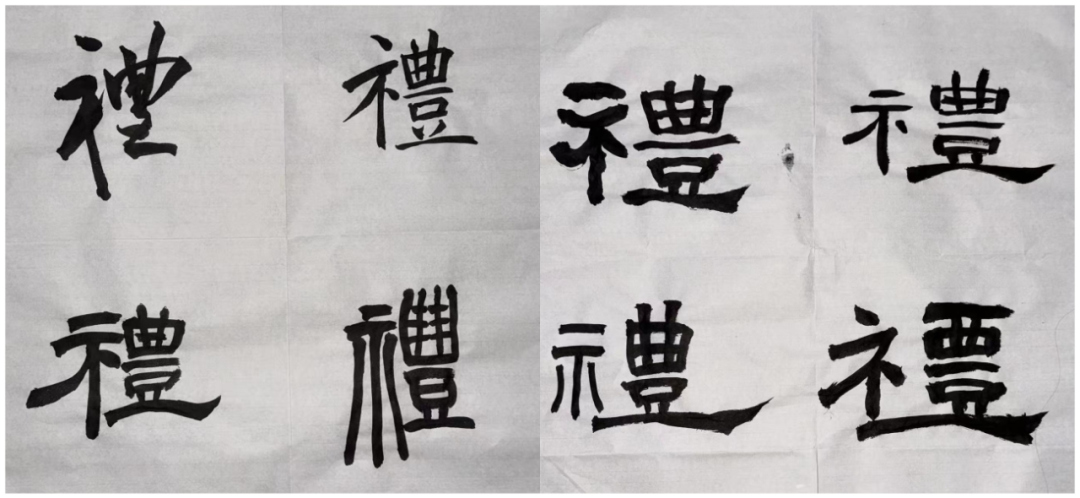 禮 禮 禮 禮
禮 禮 禮 禮